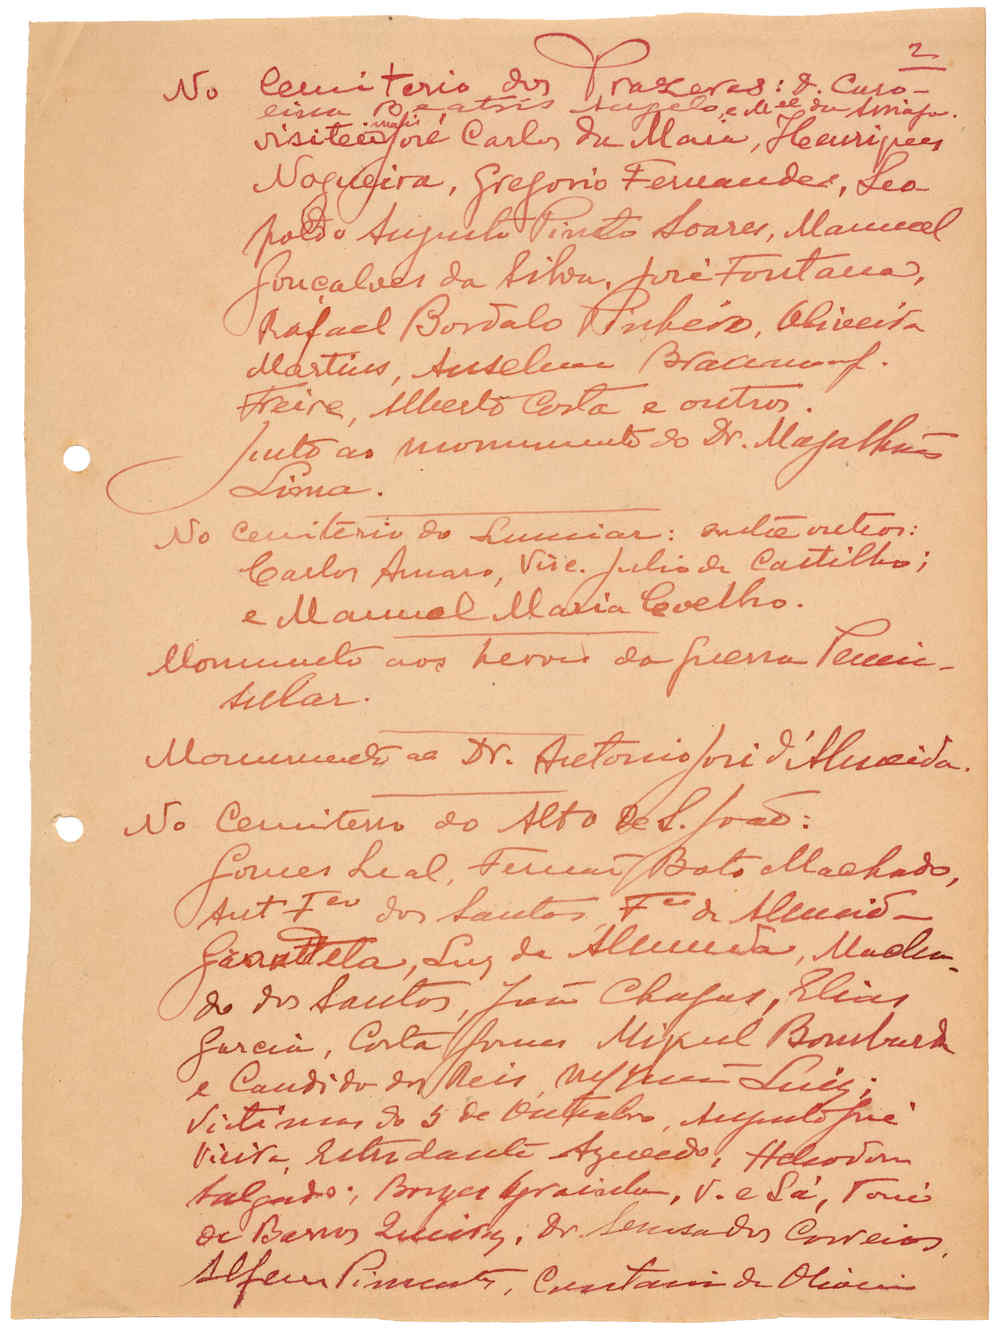 2
No Cemiterio dos Prazeres: D. Caro-
lina Beatris Angelo, e M.el da Arriaga.
visitei mais José Carlos da Maia, Henriques
Nogueira, Gregorio Fernandes, Leo
poldo Augusto Pinto Soares, Manuel
Gonçalves da Silva, José Fontana,
Rafael Bordalo Pinheiro, Oliveira
Martins, Anselmo Braamcamp.
Freire, Alberto Costa e outros.
Junto ao monumento do Dr. Magalhães
Lima.
No Cemitério do Lumiar: entre outros:
Carlos Amaro, Visc. Julio de Castilho;
e Manuel Maria Coelho.
Monumento aos herois da guerra Penin-
sular.
Monumento ao Dr. Antonio José d'Almeida.
No Cemiterio do Alto de S. João:
Gomes Leal, Fernão Boto Machado,
Ant Feu dos Santos, Fco de Almeida
Grandella, Luz de Almeida, Macha-
do dos Santos, João Chagas, Elias
Garcia, Costa Gomes Miguel Bombarda
e Candido dos Reis, Luis;
Victimas do 5 de Outubro, Augusto José
Vieira, Estudante Azevedo, Heliodoro
Salgado; Borges Grainha, V. e Sá, Tomé
de Barros Queiroz, Dr. dos Correios,
Pimenta, Caetano de Oliveira